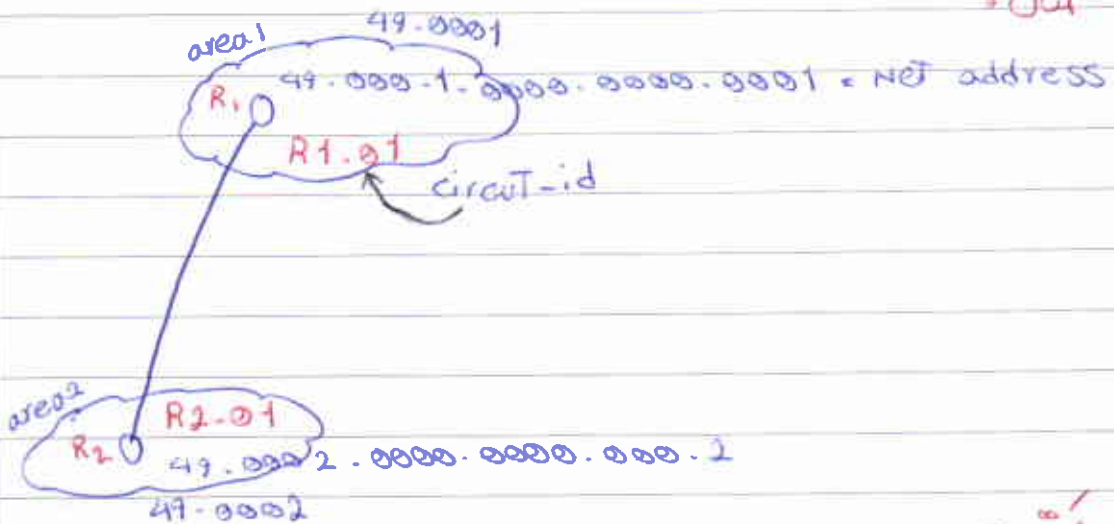 area1
49-0001
49.000-1-0000.0000.0001 = NET address
R1
R1.01
circuT-id
area2
R2-01
R2
49.0002.0000.0000.000.2
49-0002